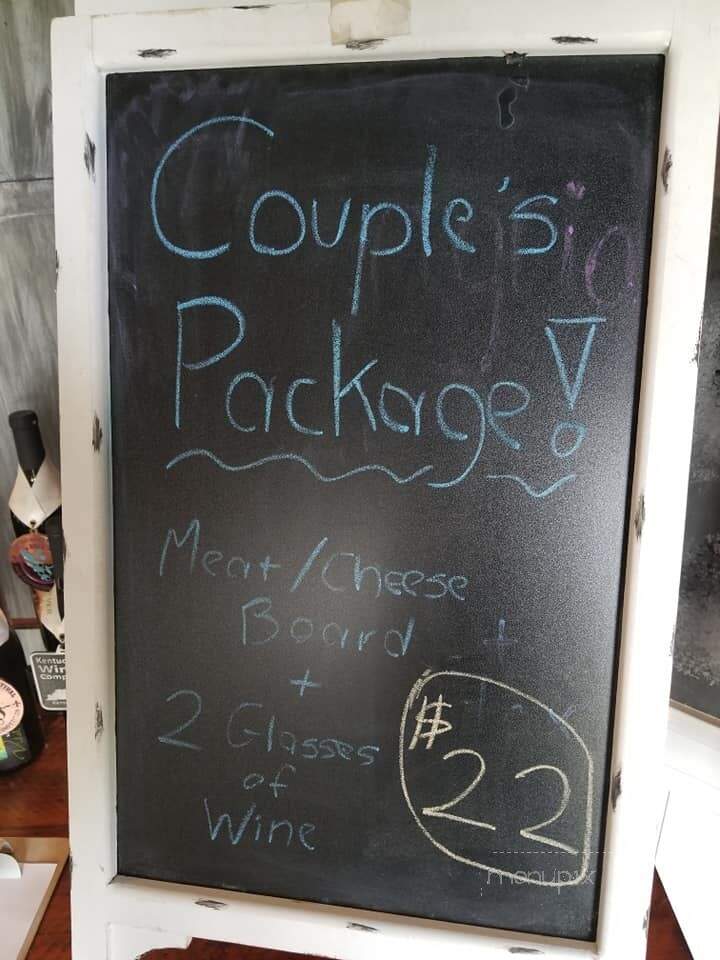 Couple's
Package!
Meat/Cheese
Board
+
2 Glasses
of
Wine
$22
Kentuc
Win
Comp
menupix